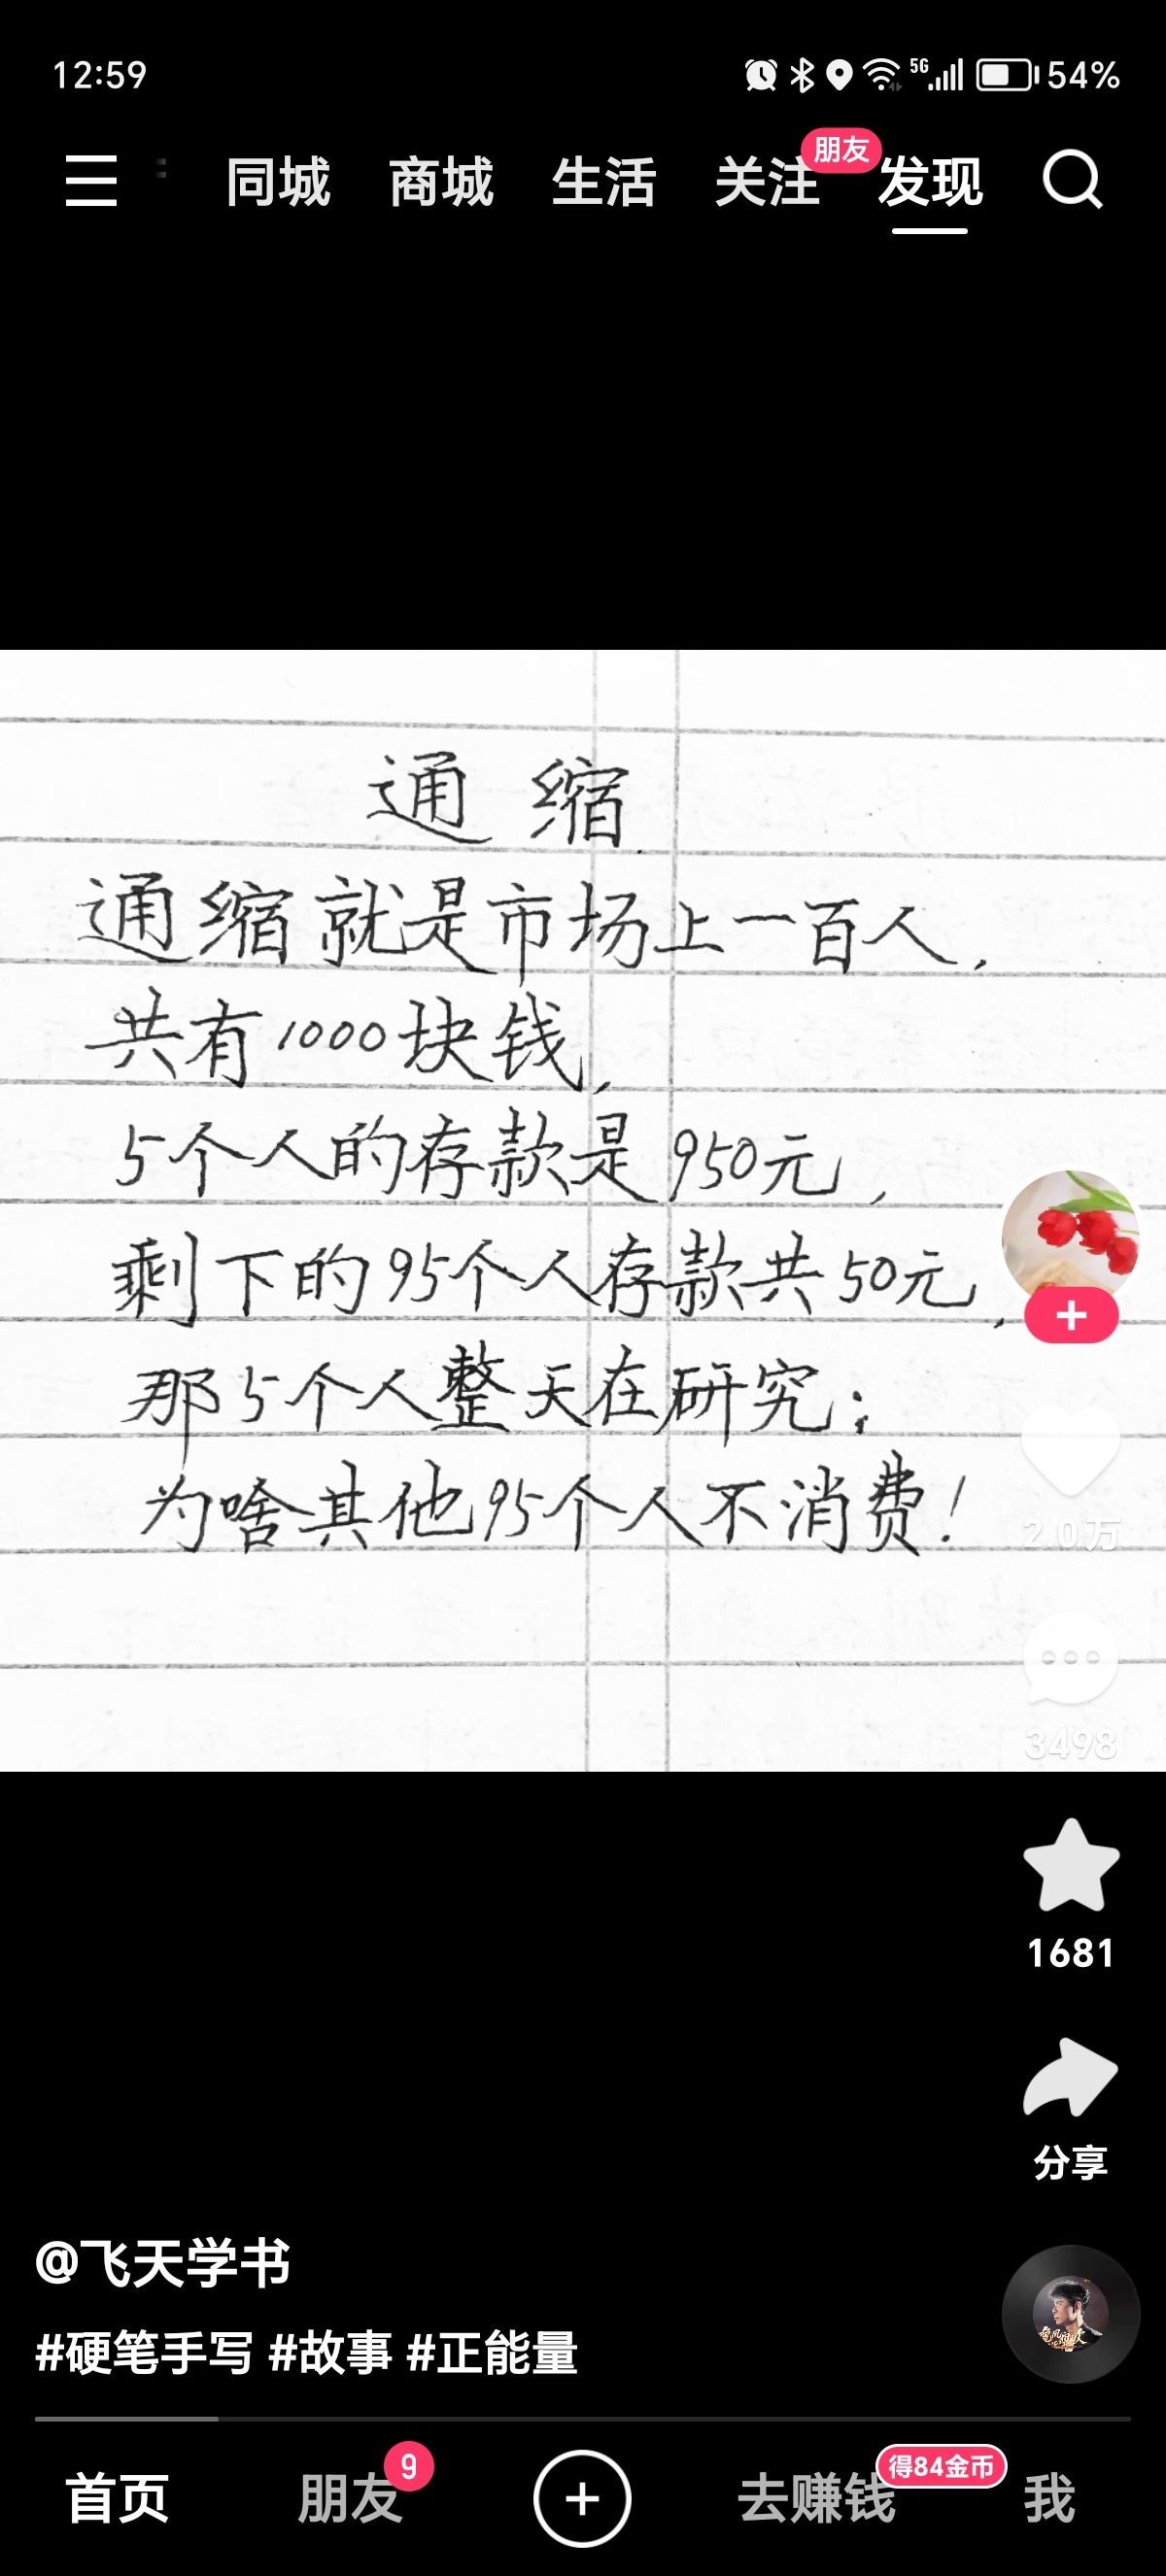 12:59
5G
54%
同城 商城 生活 关注 朋友 发现
通缩
通缩就是市场上一百人,
共有1000块钱,
5个人的存款是950元,
剩下的95个人存款共50元,
那5个人整天在研究:
为啥其他95个人不消费!
2.0万
3498
1681
分享
@飞天学书
#硬笔手写 #故事 #正能量
首页 朋友 9 去赚钱 得84金币 我